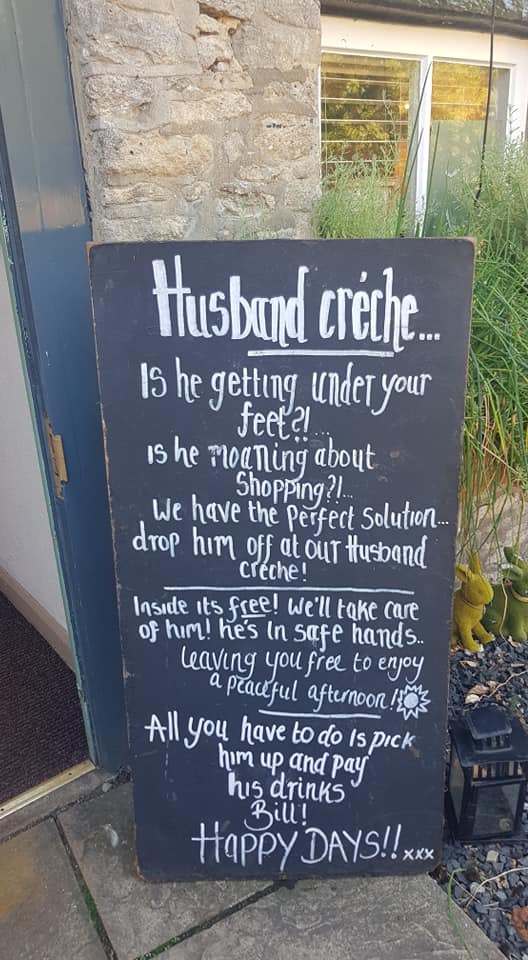 Husband créche...
Is he getting under your
feet?!...
is he moaning about
Shopping?!...
We have the Perfect Solution...
drop him off at our Husband
creche!
Inside its free! We'll take care
of him! he's In safe hands..
leaving you free to enjoy
a peaceful afternoon!
All you have to do Is pick
him up and pay
his drinks
Bill!
HAPPY DAYS!! xxx